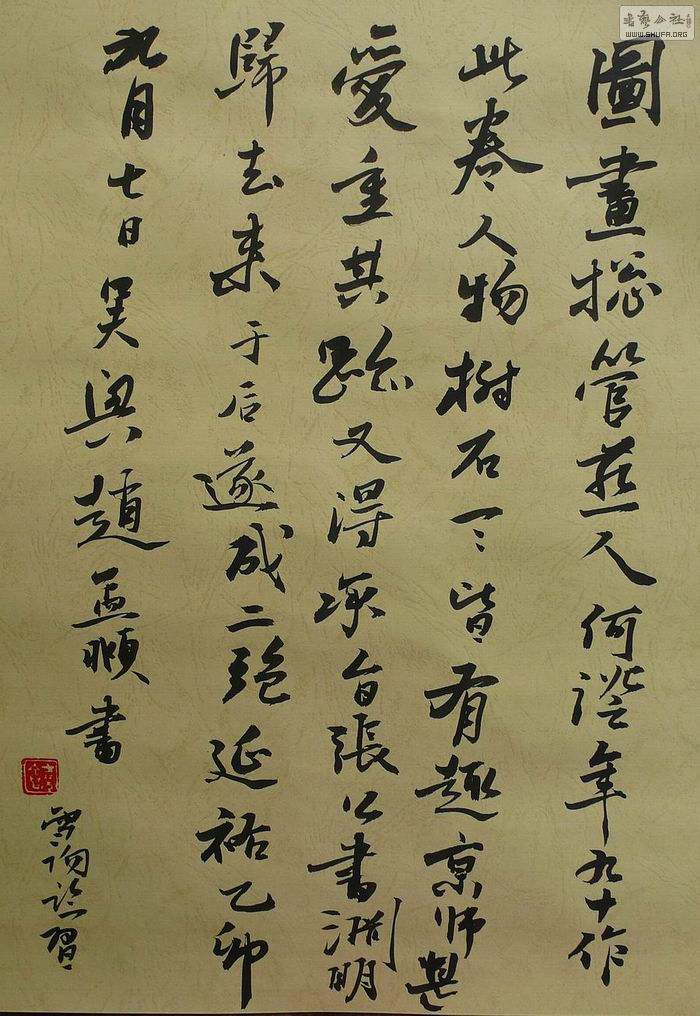 圖畫揔管燕人何澄年九十作
此卷人物樹石一一皆有趣京師甚
愛重其跡又得深自張公書淵明
歸去来于后遂成二絶延祐乙卯
九月七日吴興趙孟頫書
臨習
書艺公社
WWW.SHUFA.ORG